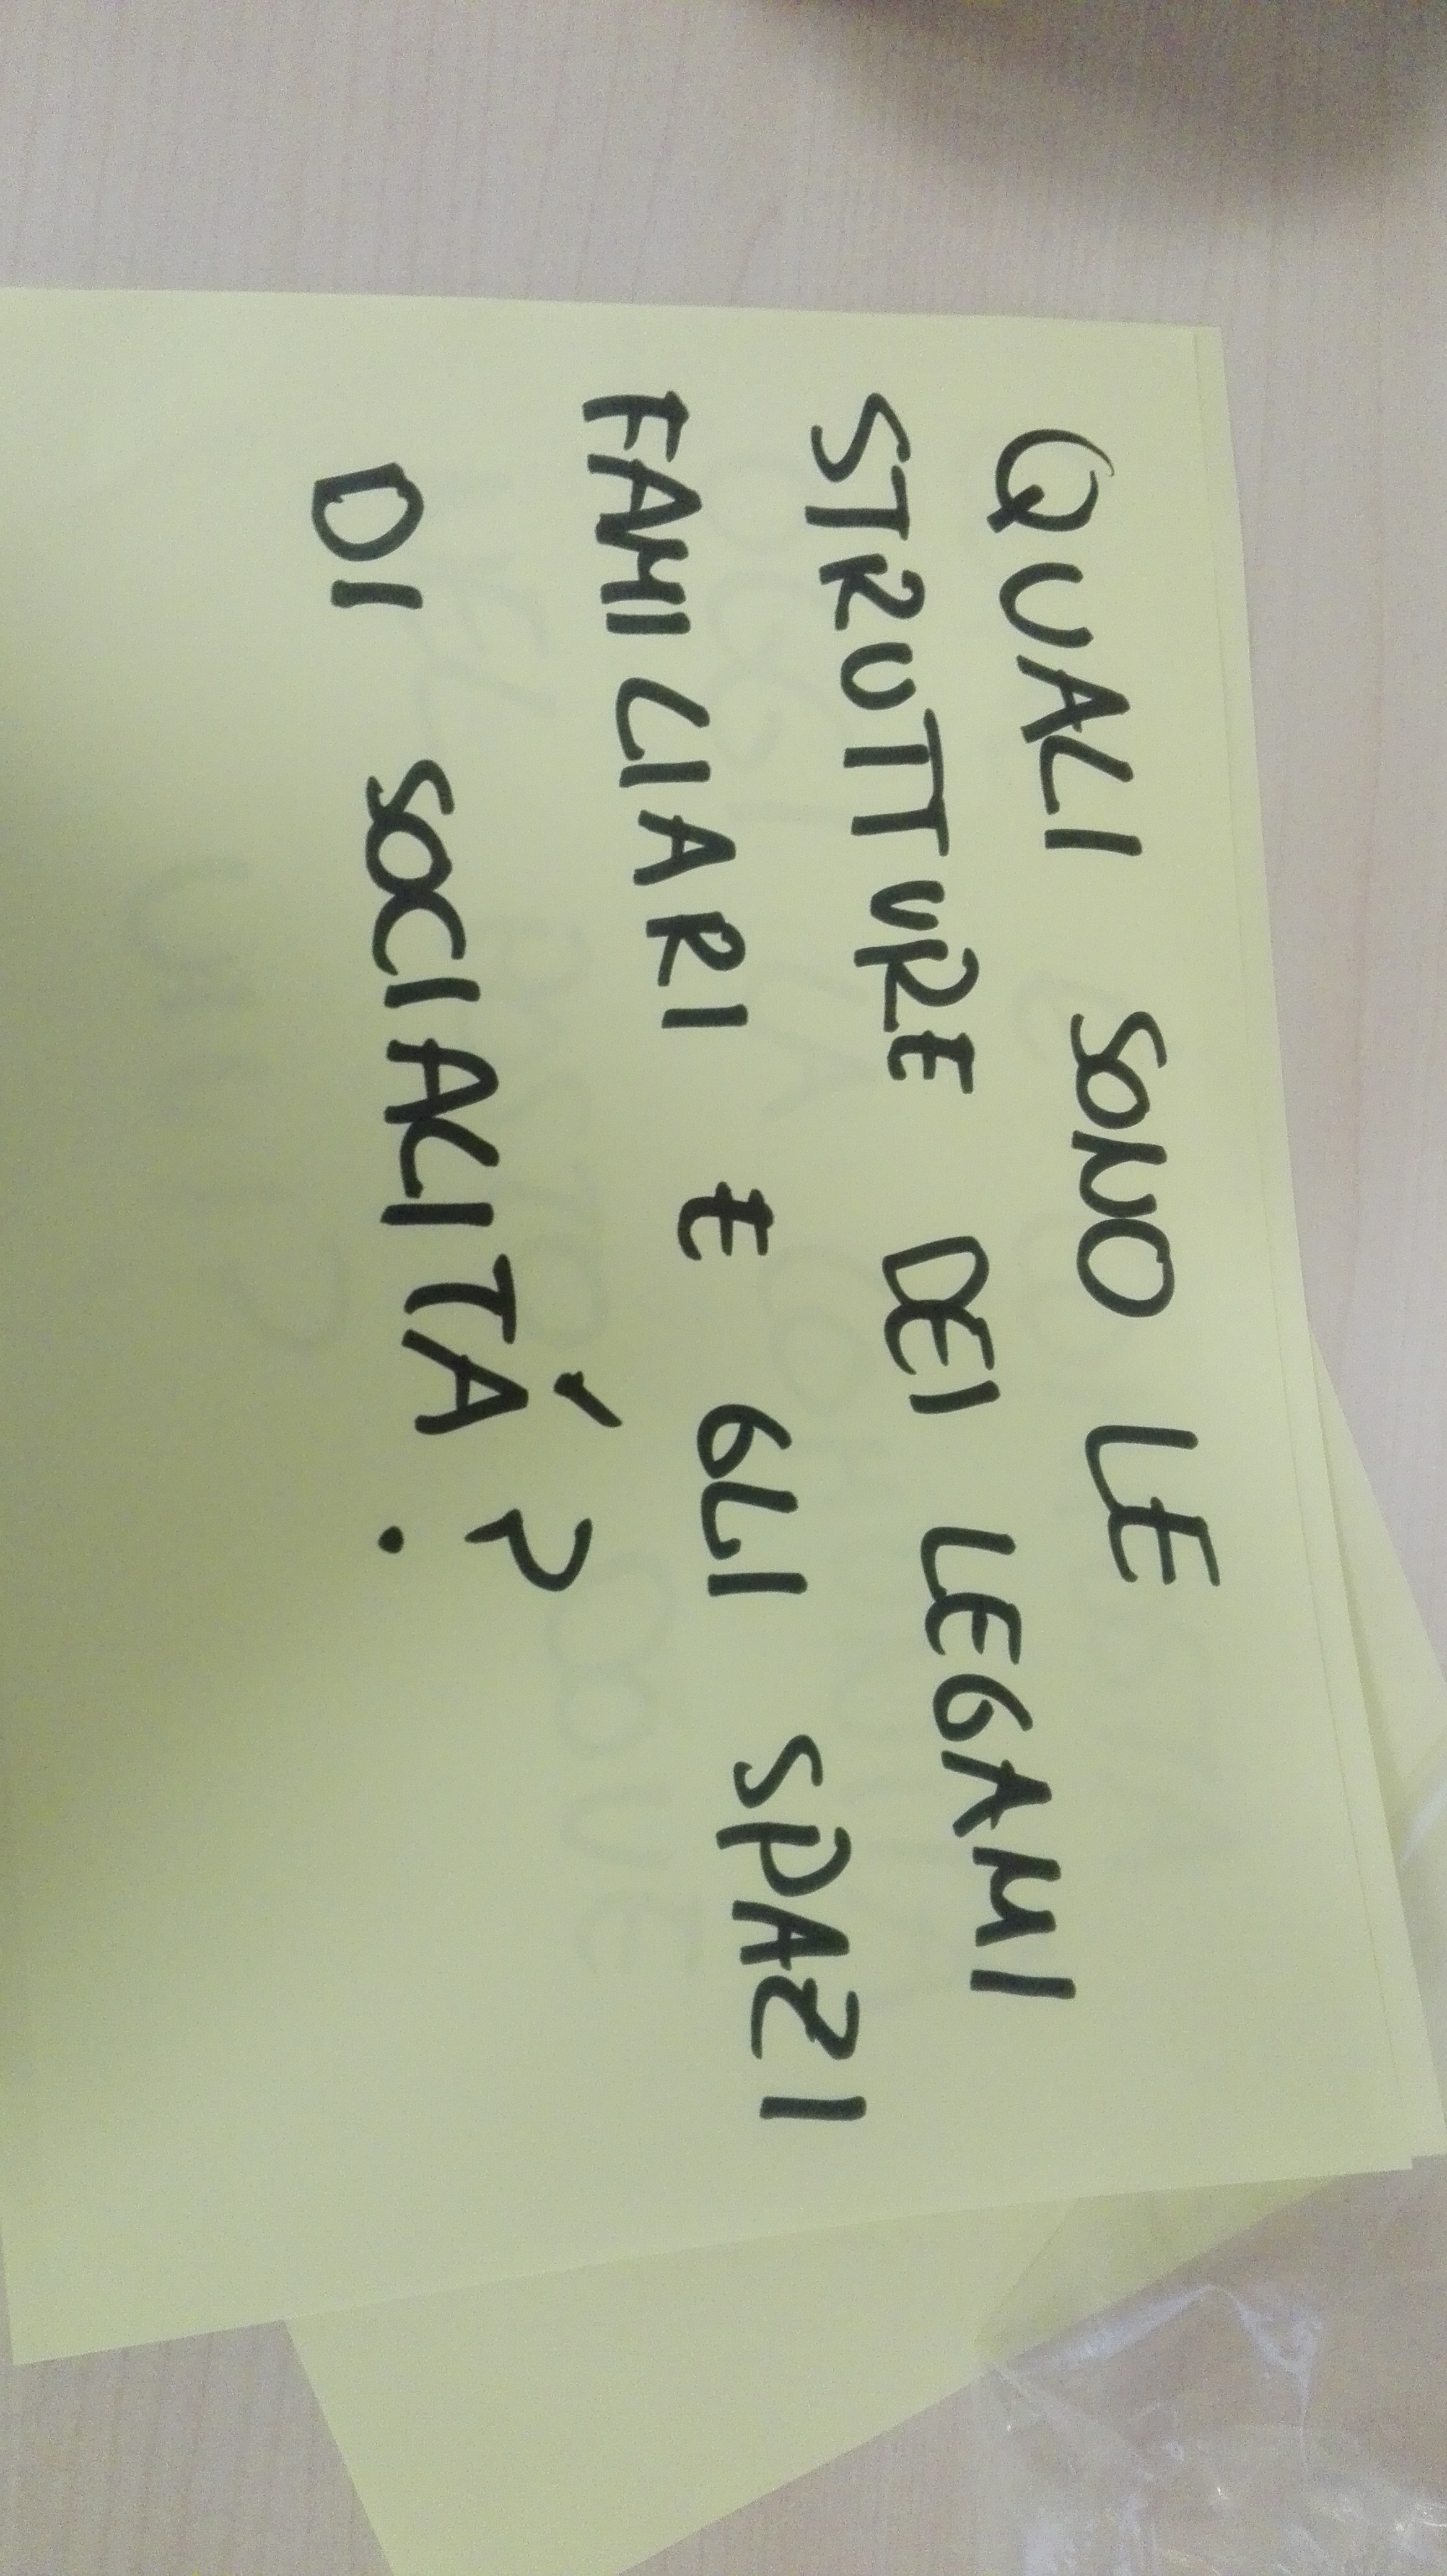 QUALI SONO LE
STRUTTURE DEI LEGAMI
FAMILIARI E GLI SPAZI
DI SOCIALITÁ?